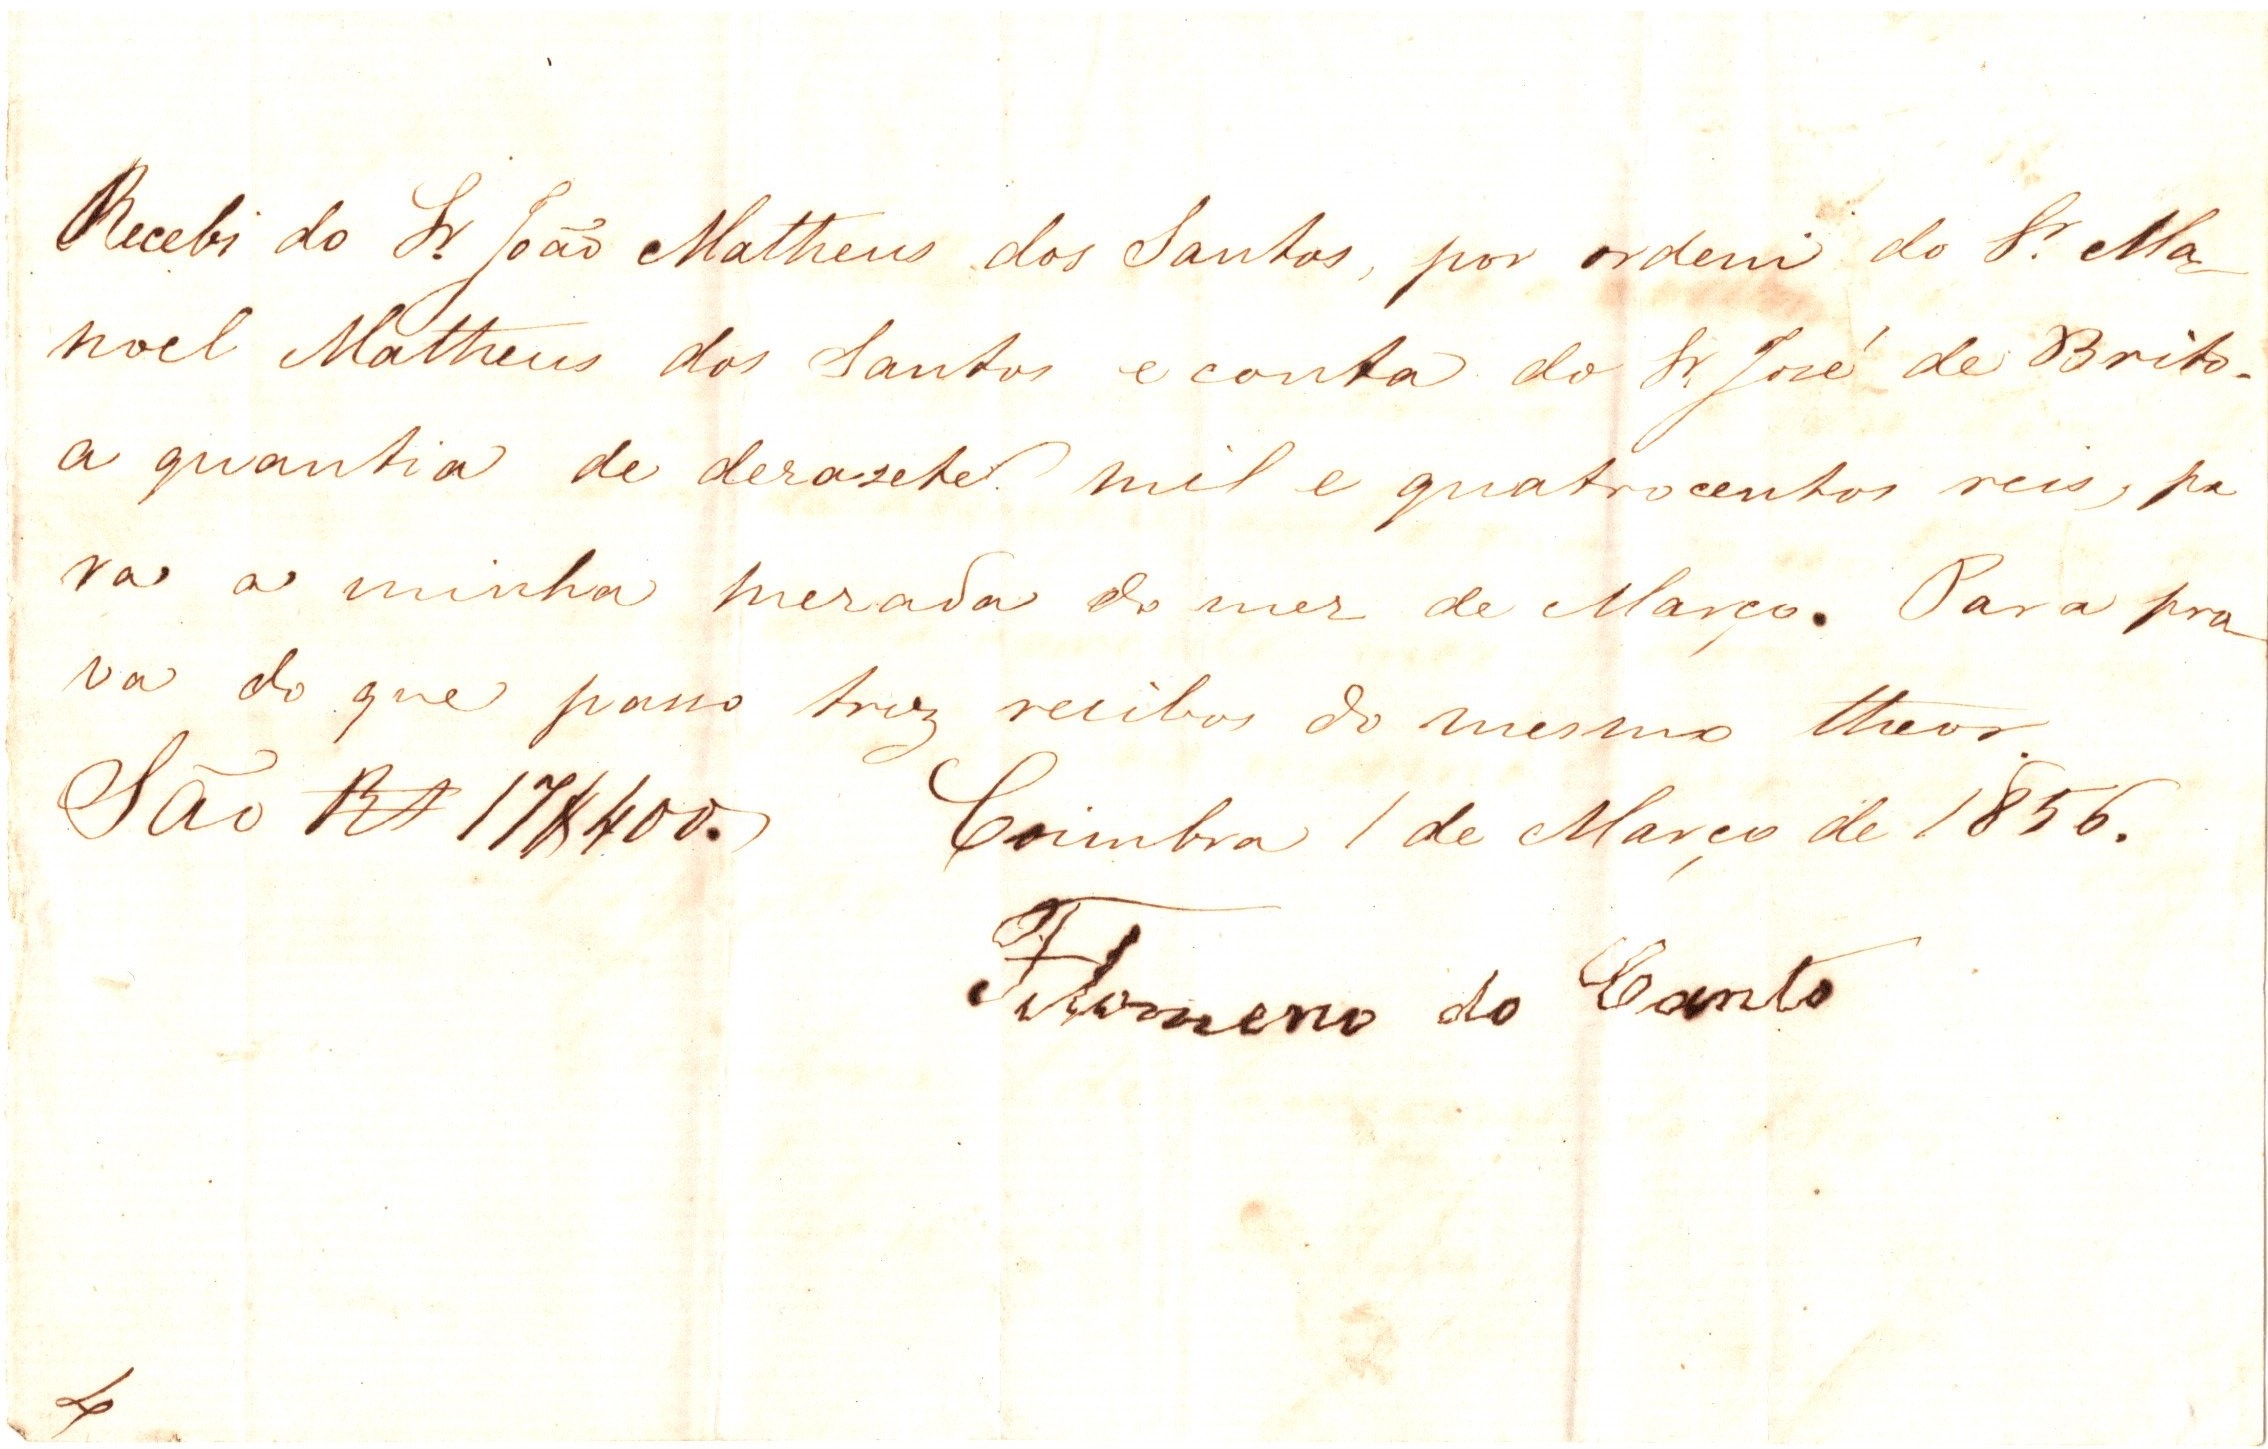 Recebi do Sr. João Matheus dos Santos, por ordem do Sr. Ma-
noel Matheus dos Santos e conta do Sr. José de Brito.
a quantia de dezasete mil e quatrocentos reis, pa
ra a minha mezada do mez de Março. Para pro-
va do que passo trez recibos do mesmo theor.
São Rs 17$400. Coimbra 1 de Março de 1856.
Filomeno do Canto